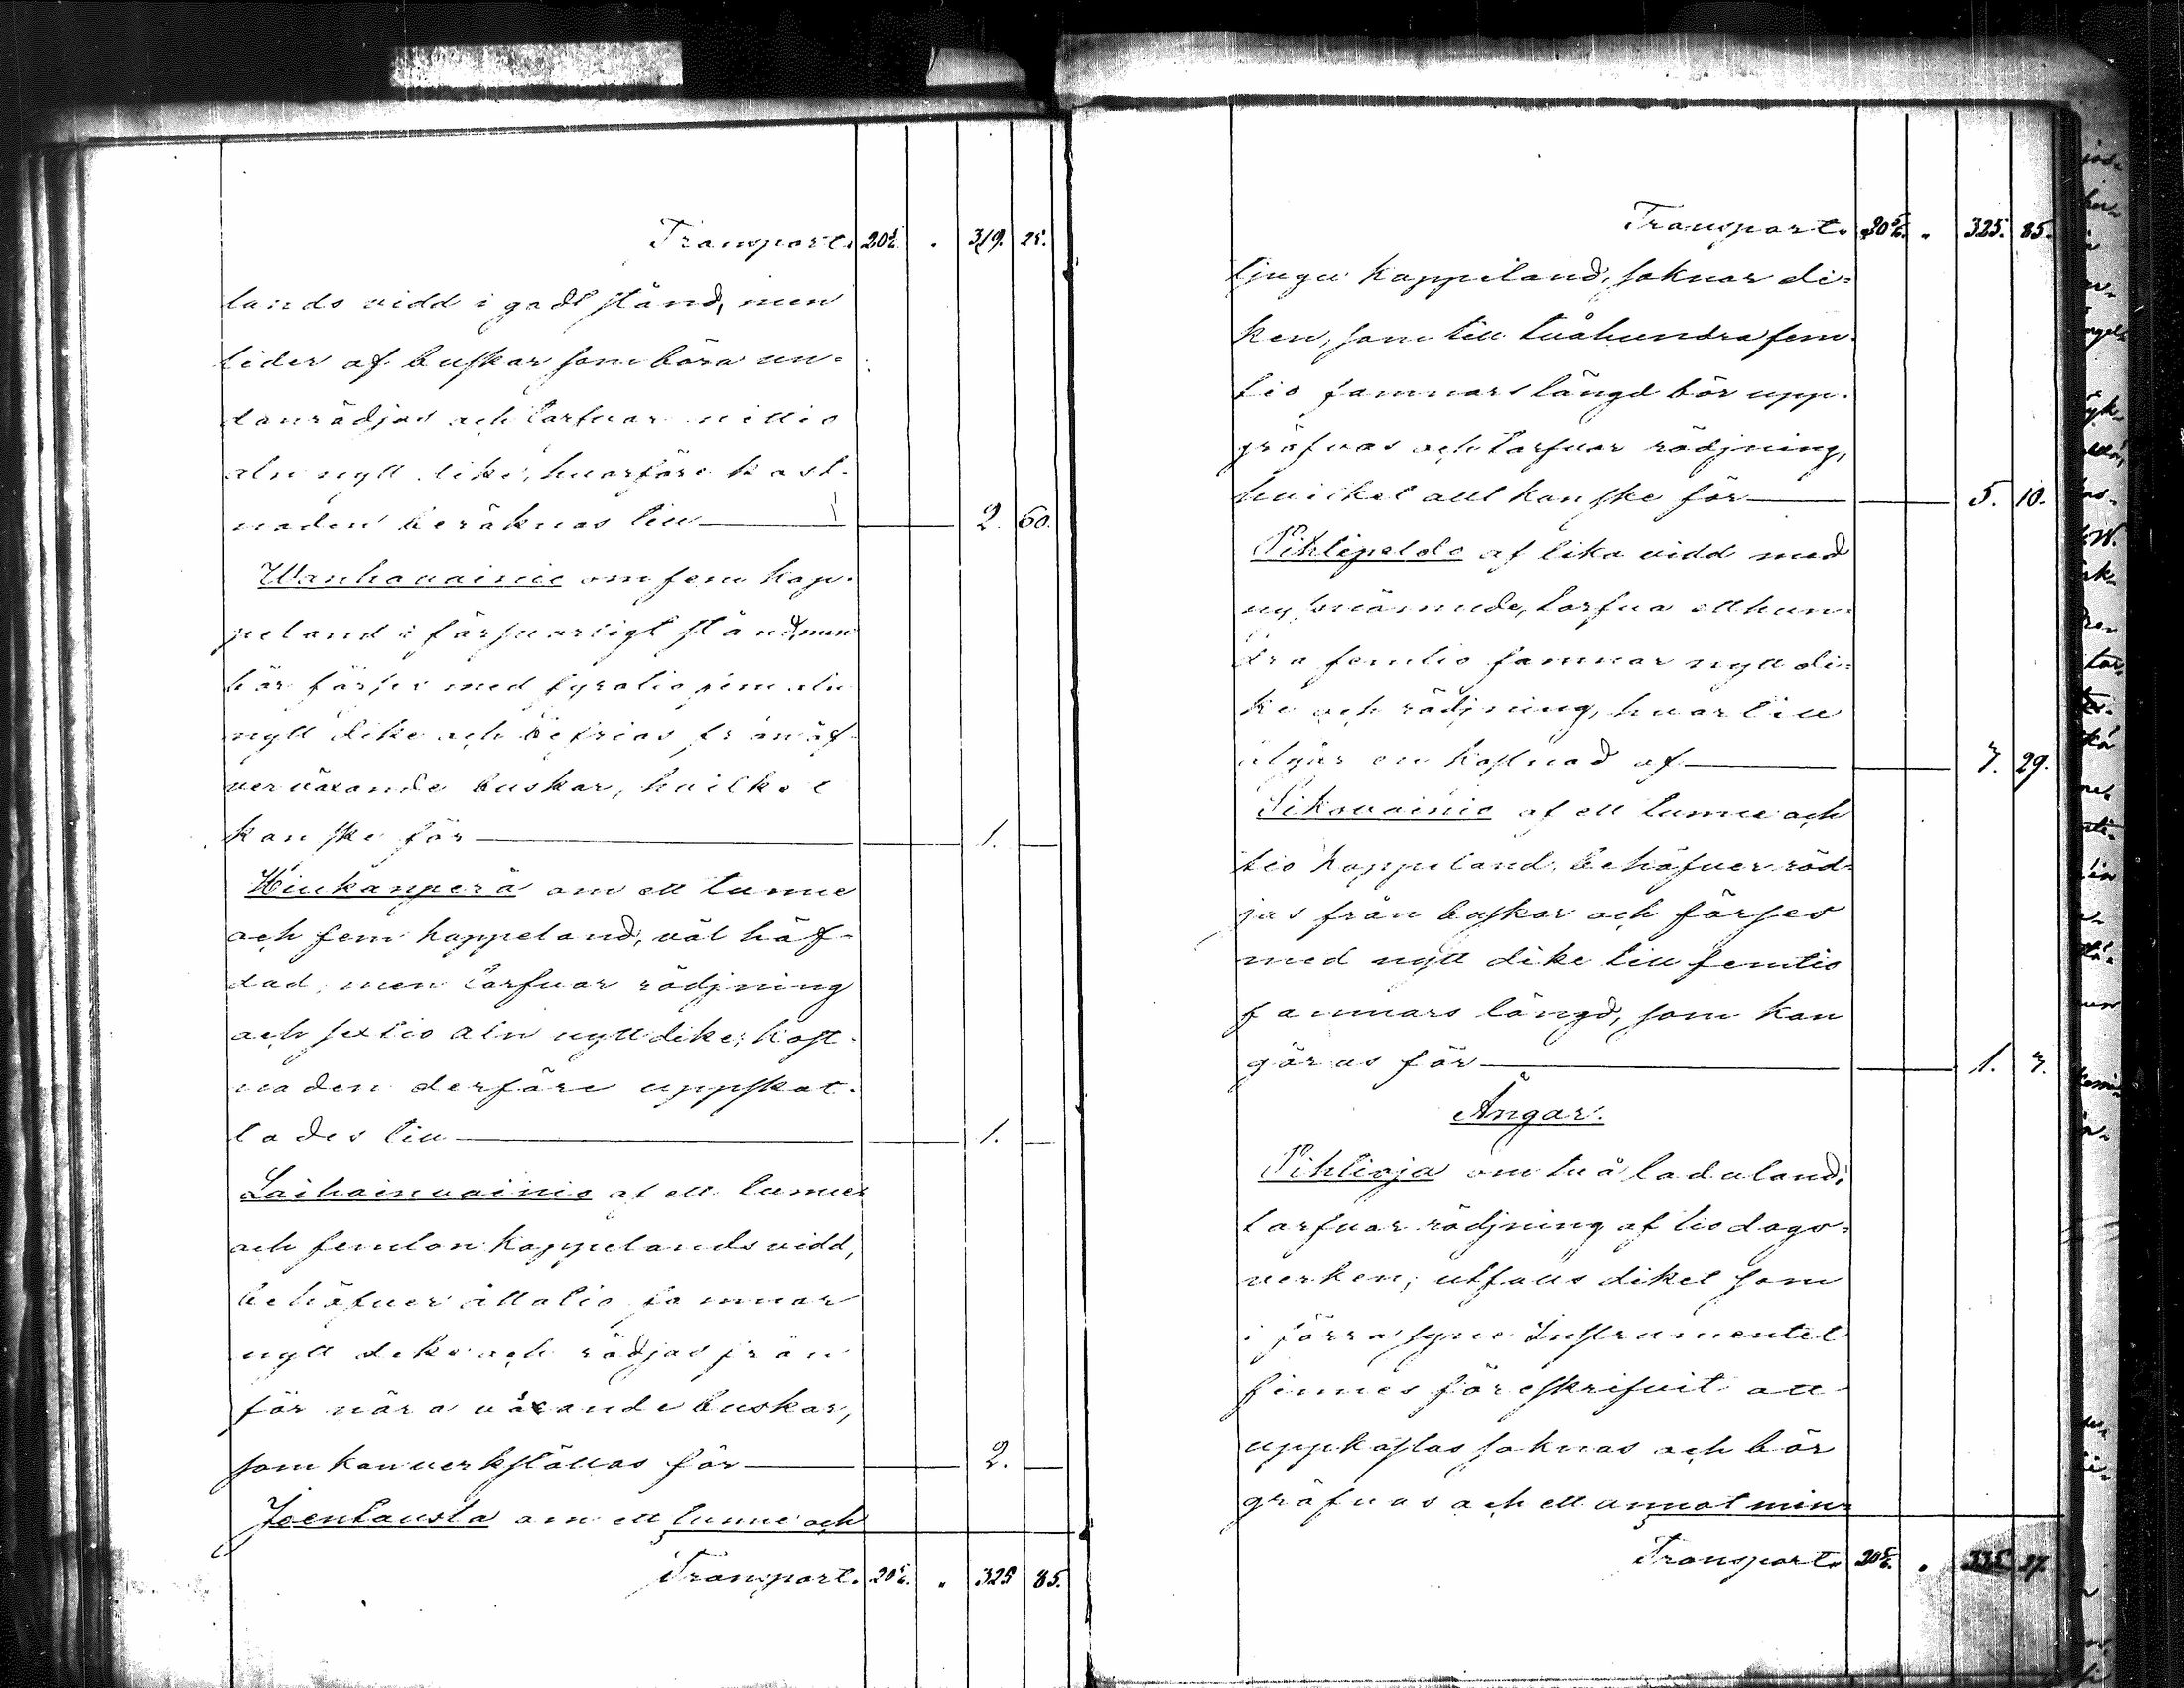 Transport. 205. . 319. 25.
lands vidd i godt stånd, men
lider af buskar som böra un-
danrödjas och tarfvar nittio
aln nytt dike, hvarföre kost-
naden beräknas till — 2. 60.
Wanhavainio om fem kap-
peland i försvarligt stånd, men
bör förses med fyratio fem aln
nytt dike och befrias från öf-
verväxande buskar, hvilket
kan ske för — 1. —
Kiukänperä om ett tunne
och fem kappeland, väl häf-
dad, men tarfvar rödjning
och sextio aln nytt dike; kost-
naden derföre uppskat-
tades till — 1. —
Laihainvainio af ett tunne
och femton kappelands vidd,
behöfver åttatio famnar
nytt dike och rödjas från
för nära växande buskar,
som kan verkställas för — 2. —
Joentausta om ett tunne och
Transport. 205. . 325 85.
Transport. 205. . 325. 85.
tjugu kappeland, saknar di-
ken, som till tvåhundra fem-
tio famnars längd bör upp-
gräfvas och tarfvar rödjning,
hvilket allt kan ske för — 5. 10.
Pihlipeldo af lika vidd med
nyssnämnde, tarfva etthun-
dra femtio famnar nytt di-
ke och rödjning, hvartill
åtgår en kostnad af — 3. 29.
Sikovainio af ett tunne och
tio kappeland, behöfver röd-
jas från buskar och förses
med nytt dike till femtio
famnars längd, som kan
göras för — 1. 3.
Ängar.
Pihlioja om två ladaland,
tarfvar rödjning af tio dags-
verken; utfalls diket som
i förra syne Instrumentet
finnes föreskrifvit att
uppkastas saknas och bör
gräfvas och ett annat min-
Transport. 205. . 335. 27.